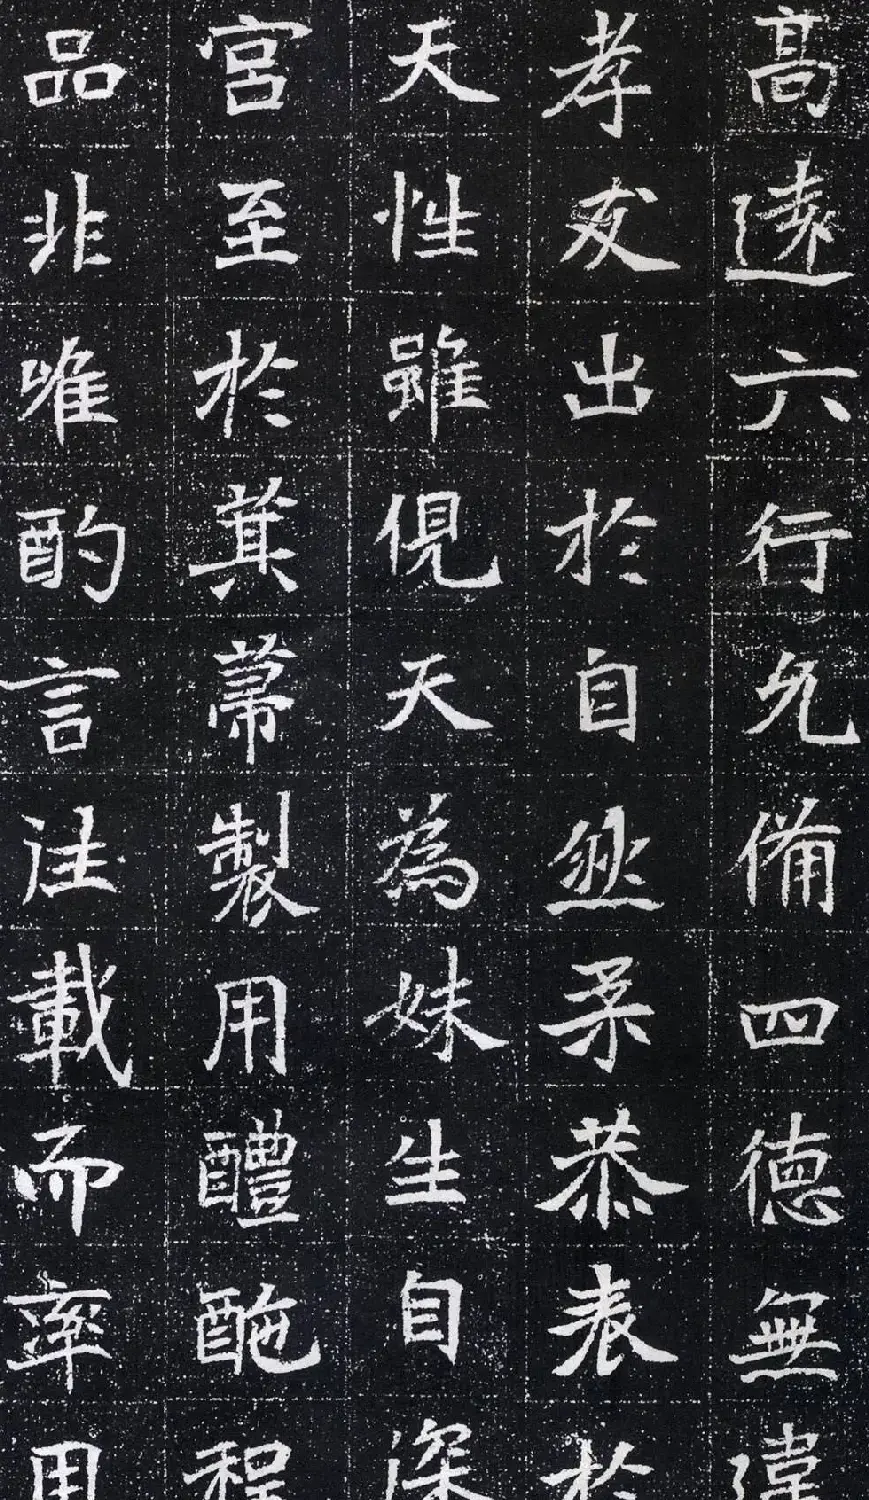 髙遠六行允備四德無違
孝友出於自然柔恭表於
天性雖俔天為妹生自深
宮至於箕蒂製用醴酏程
品非唯酌言往載而率用